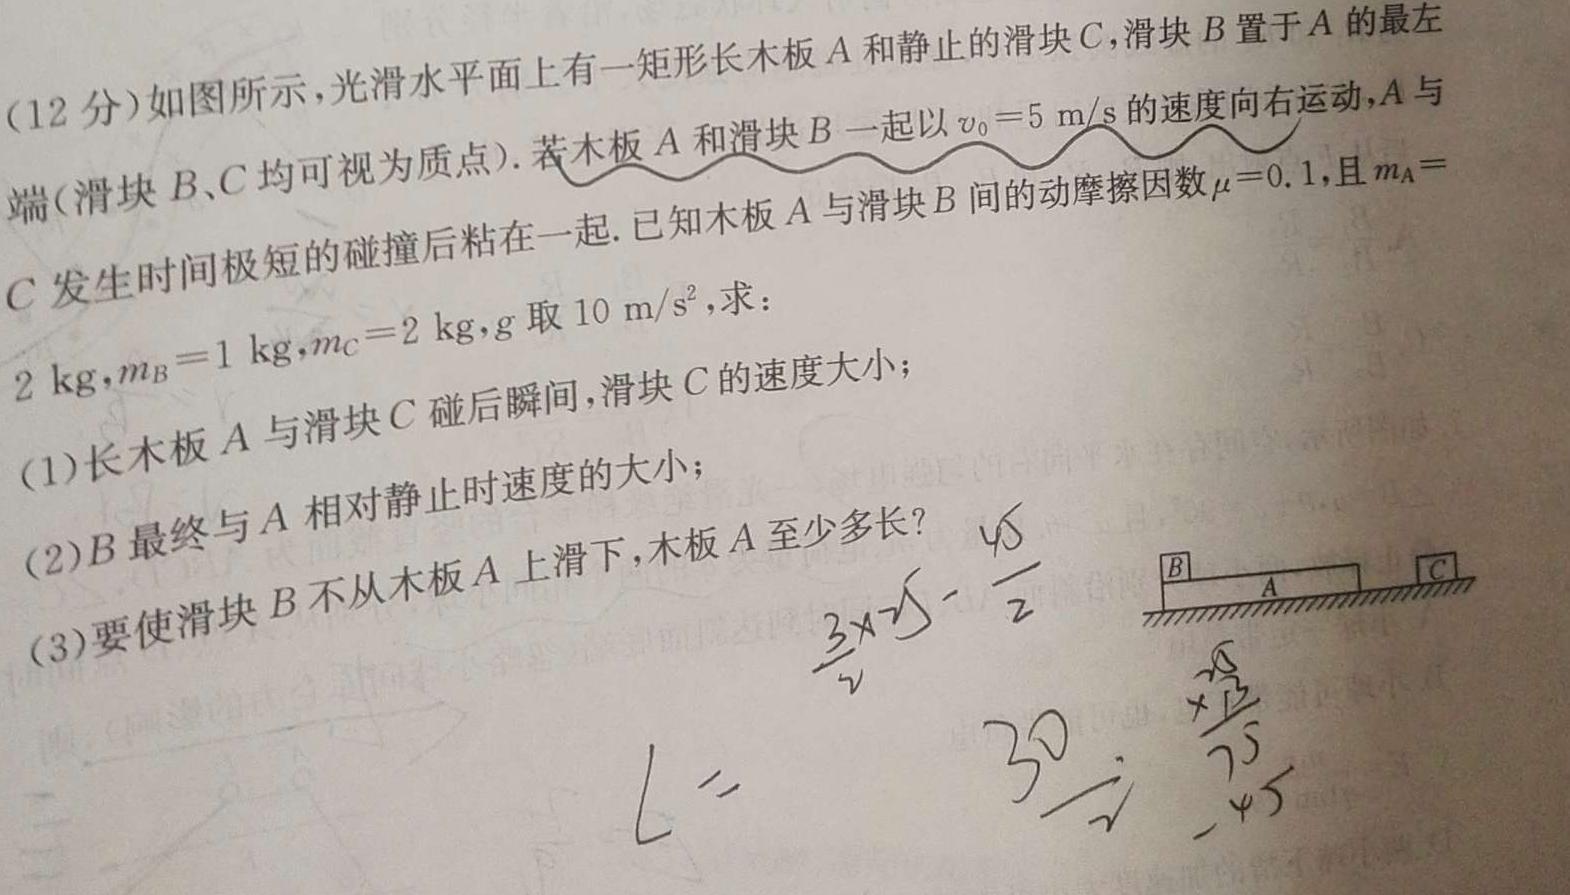 (12 分)如图所示,光滑水平面上有一矩形长木板 A 和静止的滑块C,滑块 B 置于A 的最左
端(滑块 B、C 均可视为质点). 若木板 A 和滑块B 一起以 v₀=5 m/s 的速度向右运动,A 与
C 发生时间极短的碰撞后粘在一起. 已知木板 A 与滑块B 间的动摩擦因数μ=0.1,且 mA=
2 kg,mB=1 kg,mC=2 kg,g 取 10 m/s²,求:
(1)长木板 A 与滑块C 碰后瞬间,滑块 C 的速度大小;
(2)B 最终与A 相对静止时速度的大小;
(3)要使滑块 B 不从木板A 上滑下,木板 A 至少多长?
B
A
C
3/2 x 25 - 45/2
L =
30
75
-45